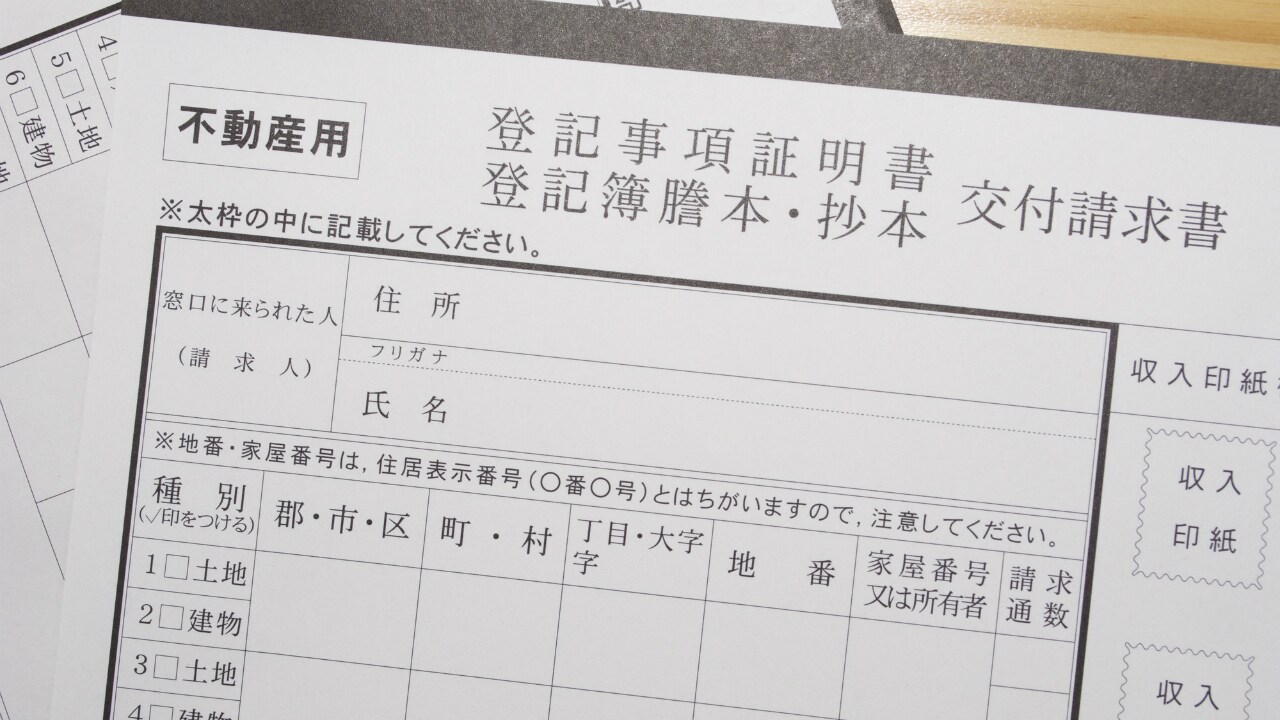 不動産用
登記事項証明書
登記簿謄本・抄本
交付請求書
※太枠の中に記載してください。
窓口に来られた人
(請求人)
住所
フリガナ
氏名
収入印紙
※地番・家屋番号は,住居表示番号(〇番〇号)とはちがいますので,注意してください。
種別
(√印をつける)
郡・市・区
町・村
丁目・大字
字
地番
家屋番号
又は所有者
請求
通数
1□土地
2□建物
3□土地
4□建物
収入
印紙
収入
5□土地
6□建物